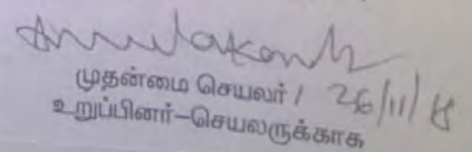 முதன்மை செயலர் / 26/11/18
உறுப்பினர்–செயலருக்காக